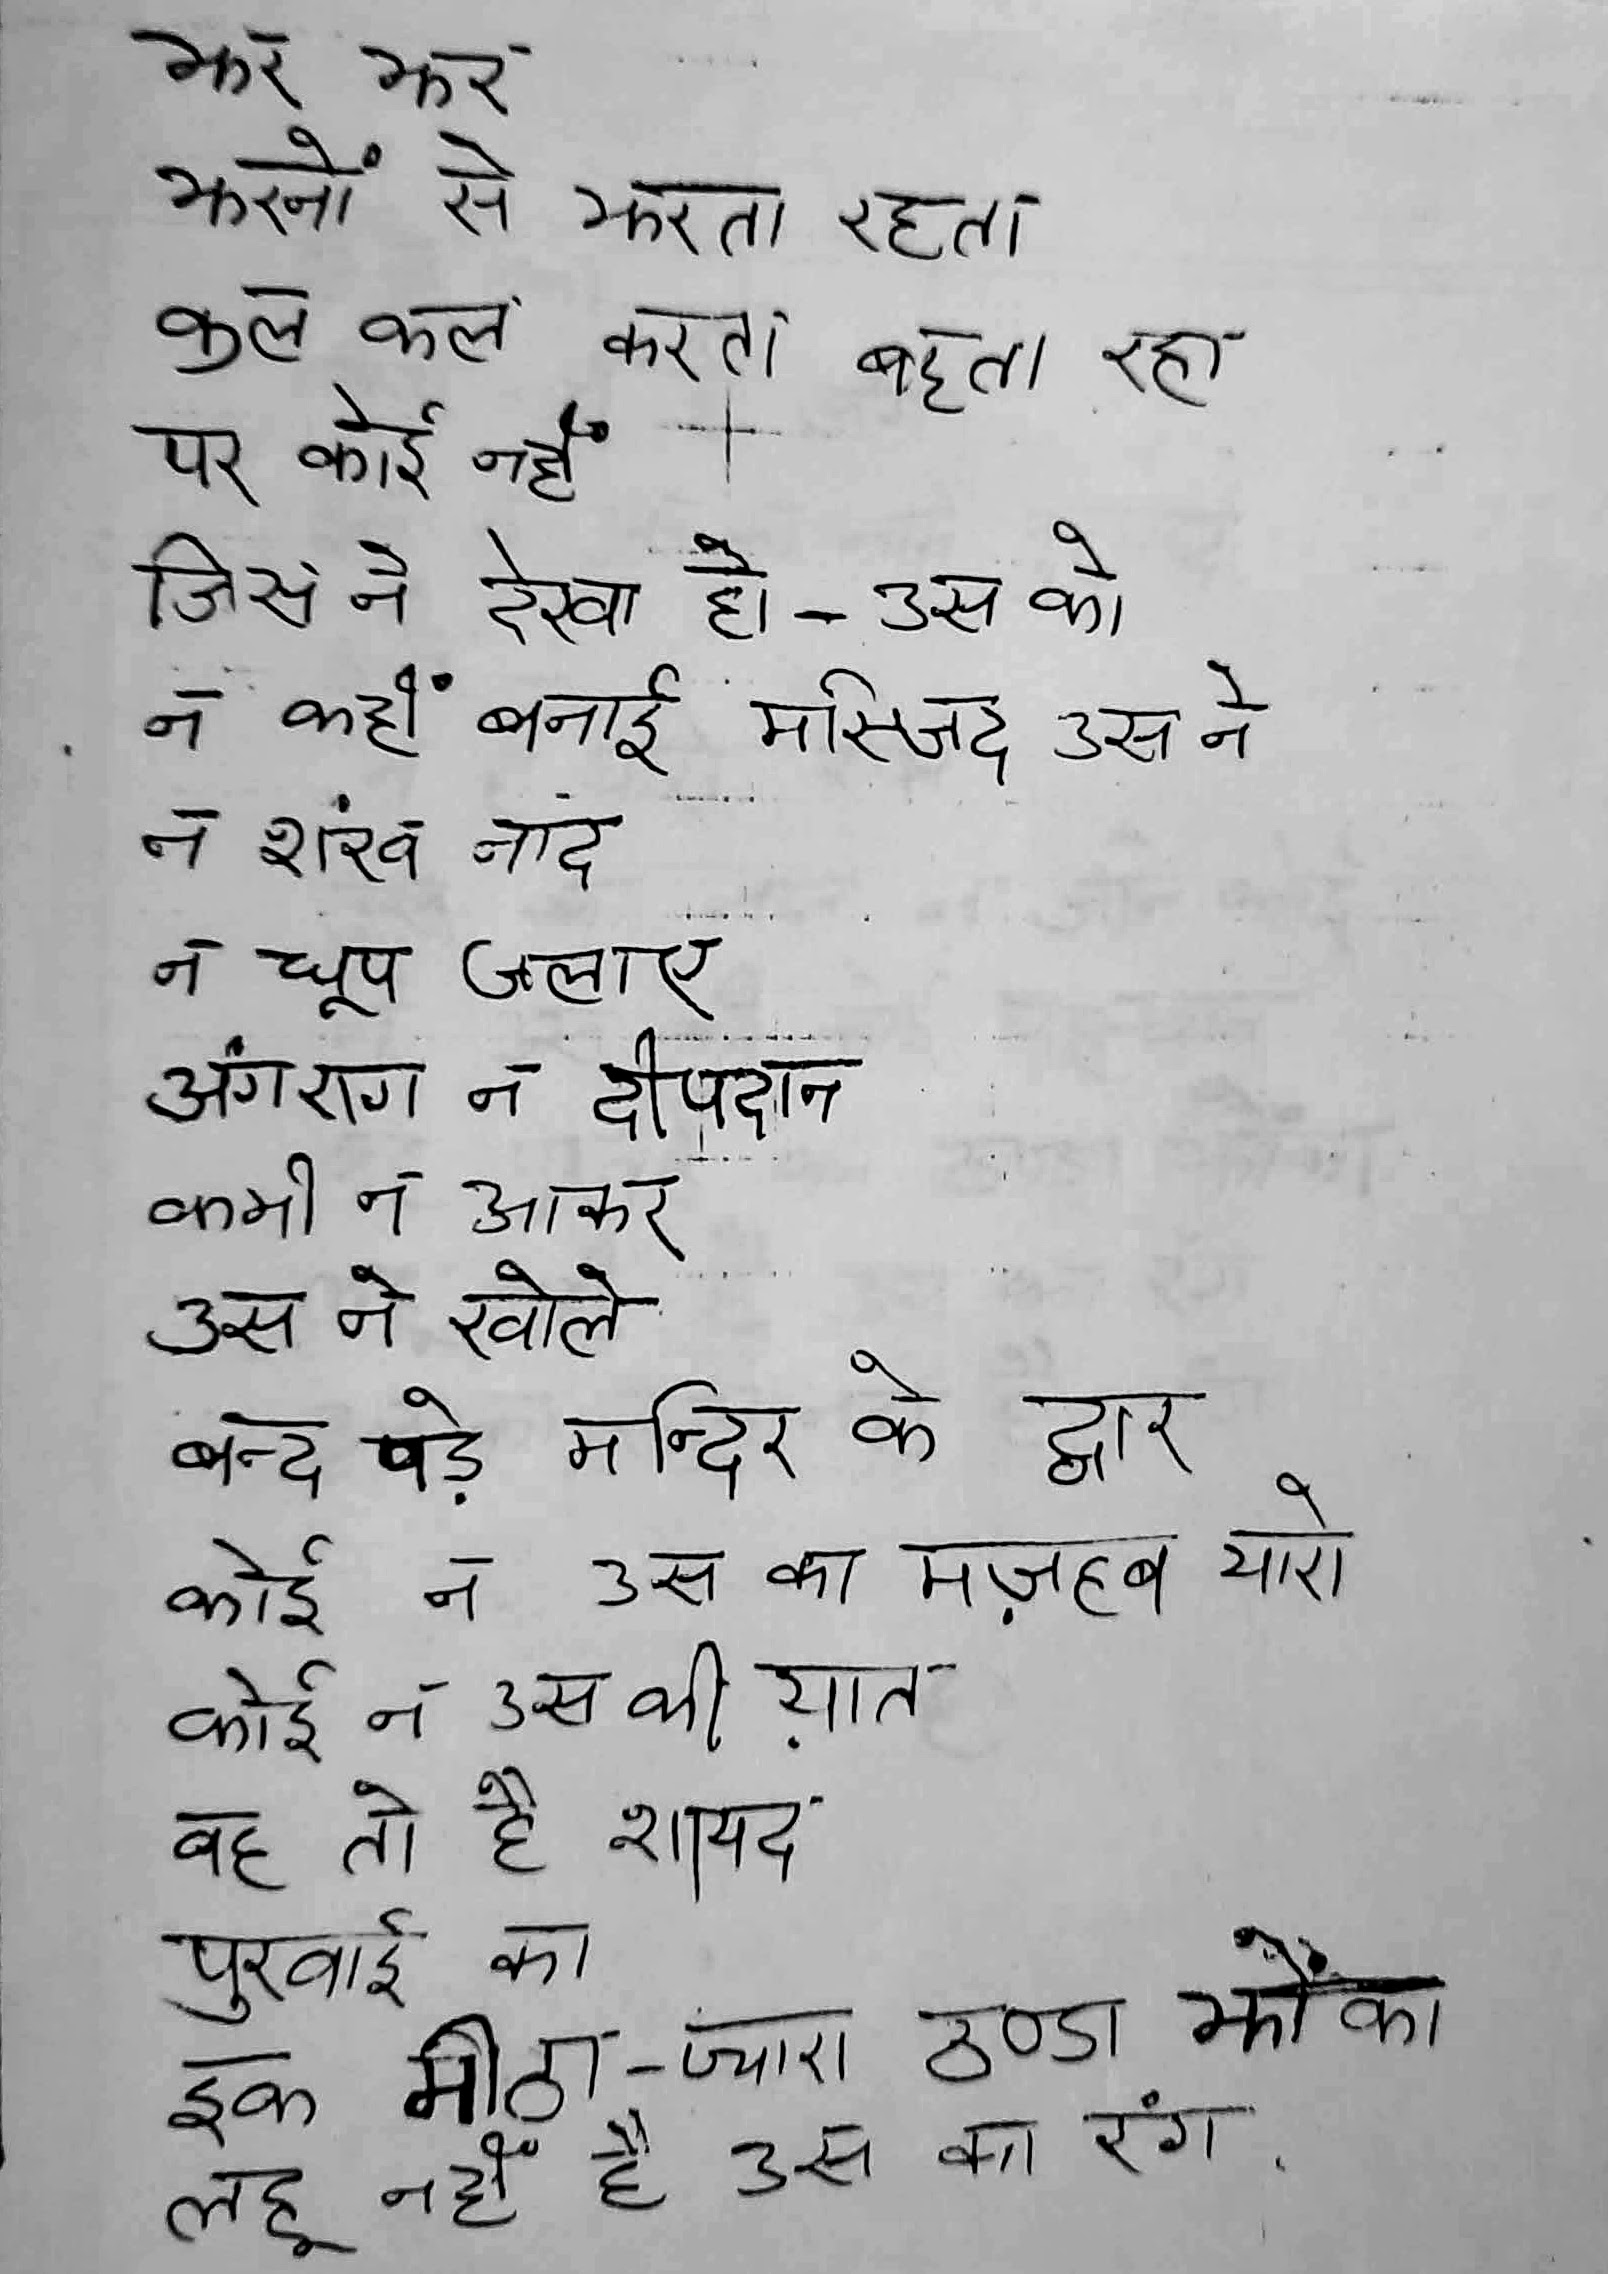 झर झर
झरनों से झरता रहता
कुल कल करता बहता रहा
पर कोई नहीं
जिस ने देखा हो - उस को
न कहीं बनाई मस्जिद उस ने
न शंख नाद
न धूप जलाए
अंगराग न दीपदान
कभी न आकर
उस ने खोले
बन्द पड़े मन्दिर के द्वार
कोई न उस का मज़हब यारो
कोई न उस की ज़ात
वह तो है शायद
पुरवाई का
इक मीठा - प्यारा ठण्डा झोंका
लहू नहीं है उस का रंग .